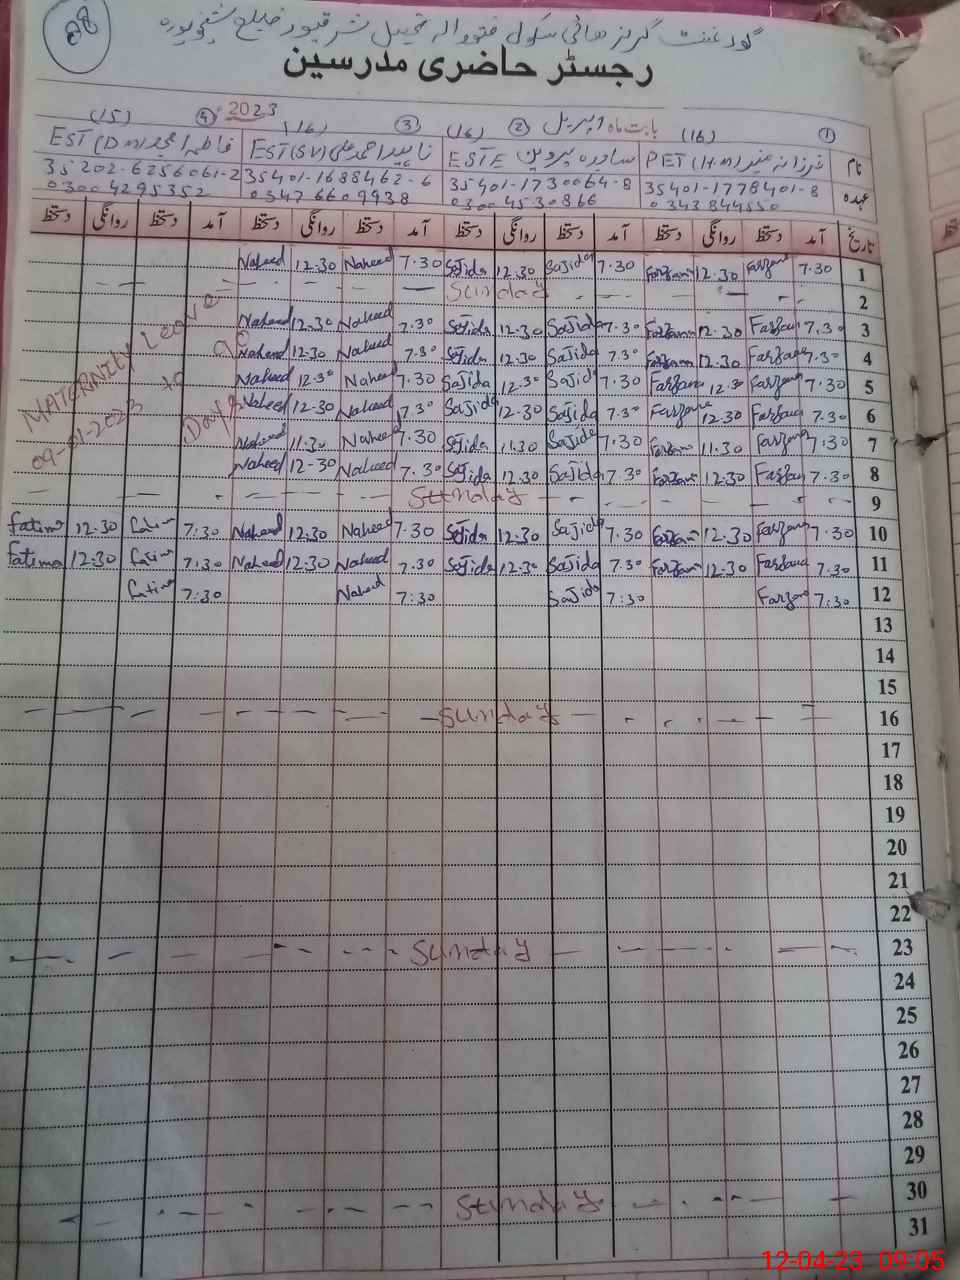 88
گورنمنٹ گرلز ھائی سکول فتووالہ تحصیل شرقپور ضلع شیخوپورہ
رجسٹر حاضری مدرسین
2023 بابت ماہ اپریل
① (16) ② (16) ③ (16) ④ (15)
نام فرزانہ منیر PET (H.M) ساجدہ پروین EST E ناہید احمد علی EST (SV) فاطمہ امجد EST (D.M)
عہدہ 35401-1778401-8 35401-1730064-8 35401-1688462-6 35202-6256061-2
0343844550 03004530866 03476609938 03004295352
تاریخ آمد دستخط روانگی دستخط آمد دستخط روانگی دستخط آمد دستخط روانگی دستخط آمد دستخط روانگی دستخط
1 7.30 Farzana 12.30 Farzana 7.30 Sajida 12.30 Sajida 7.30 Naheed 12.30 Naheed
2 Sunday
3 7.30 Farzana 12.30 Farzana 7.30 Sajida 12.30 Sajida 7.30 Naheed 12.30 Naheed
4 7.30 Farzana 12.30 Farzana 7.30 Sajida 12.30 Sajida 7.30 Naheed 12.30 Naheed
5 7.30 Farzana 12.30 Farzana 7.30 Sajida 12.30 Sajida 7.30 Naheed 12.30 Naheed
6 7.30 Farzana 12.30 Farzana 7.30 Sajida 12.30 Sajida 7.30 Naheed 12.30 Naheed
7 7.30 Farzana 11.30 Farzana 7.30 Sajida 11.30 Sajida 7.30 Naheed 11.30 Naheed
8 7.30 Farzana 12.30 Farzana 7.30 Sajida 12.30 Sajida 7.30 Naheed 12-30 Naheed
MATERNITY Leave
09-01-2023 to 90 Days
9 Sunday
10 7.30 Farzana 12.30 Farzana 7.30 Sajida 12.30 Sajida 7.30 Naheed 12.30 Naheed 7.30 Fatima 12.30 Fatima
11 7.30 Farzana 12.30 Farzana 7.30 Sajida 12.30 Sajida 7.30 Naheed 12.30 Naheed 7.30 Fatima 12.30 Fatima
12 7.30 Farzana 7.30 Sajida 7.30 Naheed 7.30 Fatima
13
14
15
16 Sunday
17
18
19
20
21
22
23 Sunday
24
25
26
27
28
29
30 Sunday
31
12-04-23 09:05